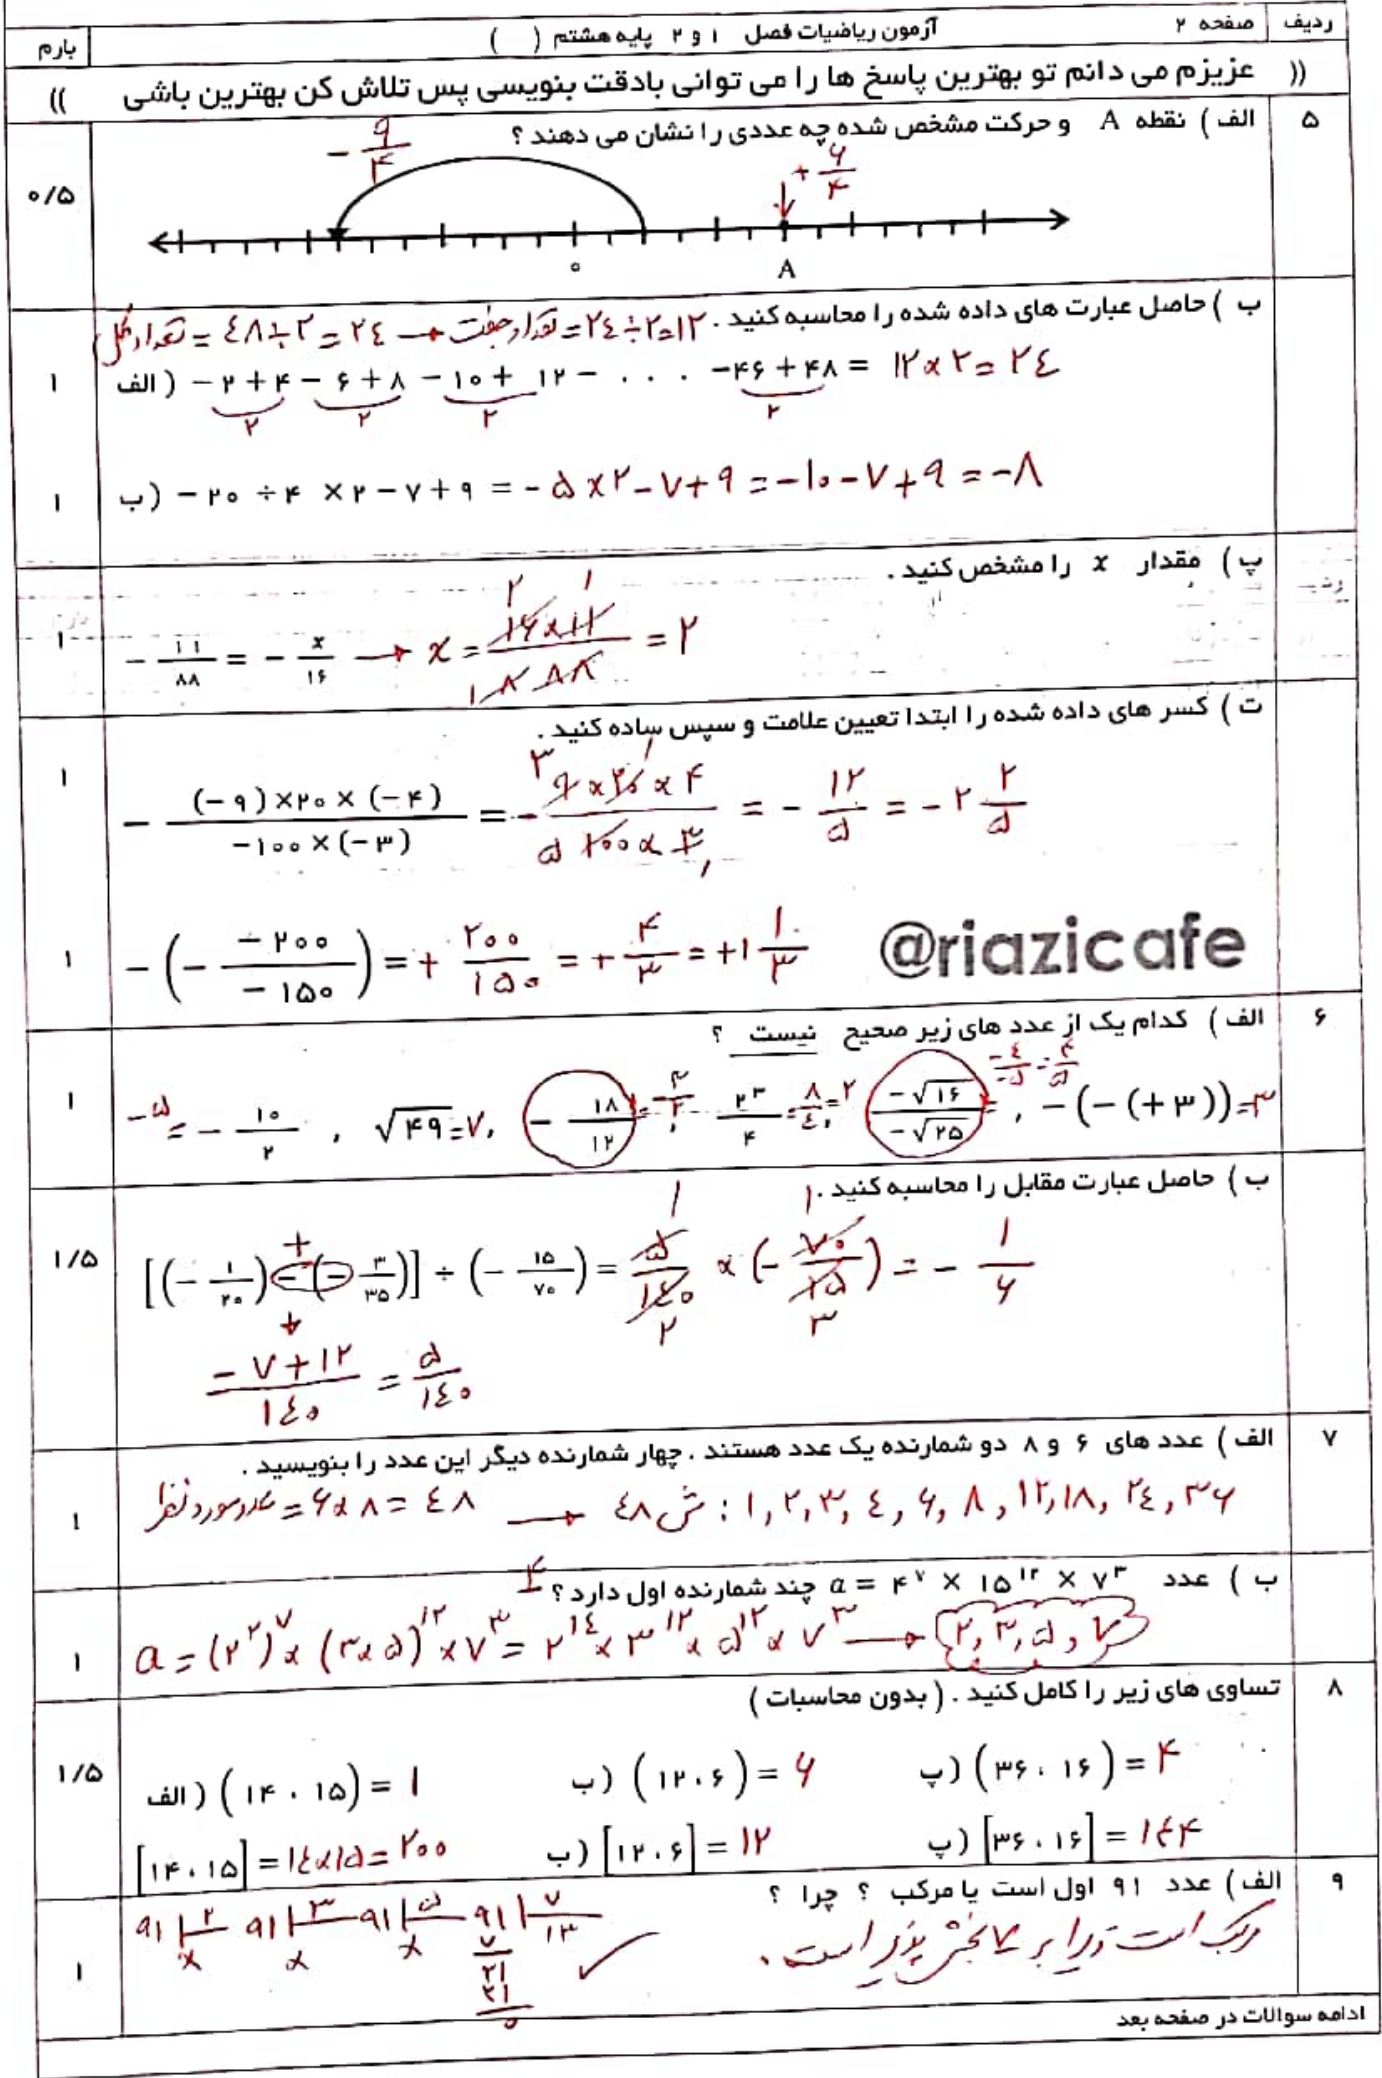 ردیف صفحه ۲ آزمون ریاضیات فصل ۱ و ۲ پایه هشتم ( ) بارم
(( عزیزم می دانم تو بهترین پاسخ ها را می توانی بادقت بنویسی پس تلاش کن بهترین باشی ))
۵ الف ) نقطه A و حرکت مشخص شده چه عددی را نشان می دهند ؟
۰/۵
-۹/۴ +۶/۴
۰ A
ب ) حاصل عبارت های داده شده را محاسبه کنید .
تعداد کل = ۴۸÷۲=۲۴ → تعداد جفت = ۲۴÷۲=۱۲
۱ الف ) -۲+۴-۶+۸-۱۰+۱۲- . . . -۴۶+۴۸= ۱۲×۲=۲۴
۲ ۲ ۲ ۲
۱ ب ) -۲۰÷۴×۲-۷+۹=-۵×۲-۷+۹=-۱۰-۷+۹=-۸
پ ) مقدار x را مشخص کنید .
۱ -۱۱/۸۸=-x/۱۶ → x=۱۶×۱۱/۸۸=۲
ت ) کسر های داده شده را ابتدا تعیین علامت و سپس ساده کنید .
۱ -(-۹)×۲۰×(-۴)/-۱۰۰×(-۳)=-۹×۲۰×۴/۱۰۰×۳=-۱۲/۵=-۲ ۲/۵
۱ -(- -۲۰۰/-۱۵۰)=+۲۰۰/۱۵۰=+۴/۳=+۱ ۱/۳
@riazicafe
۶ الف ) کدام یک از عدد های زیر صحیح نیست ؟
۱ -۵=-۱۰/۲ , √۴۹=۷, -۱۸/۱۲=-۳/۲, ۲^۳/۴=۸/۴=۲, -√۱۶/-√۲۵=-۴/-۵=۴/۵, -(-(+۳))=۳
ب ) حاصل عبارت مقابل را محاسبه کنید .
۱/۵ [(-۱/۲۰)-(-۳/۳۵)]÷(-۱۵/۷۰)=۵/۱۴۰×(-۷۰/۱۵)=-۱/۶
-۷+۱۲/۱۴۰=۵/۱۴۰
۷ الف ) عدد های ۶ و ۸ دو شمارنده یک عدد هستند . چهار شمارنده دیگر این عدد را بنویسید .
۱ عدد مورد نظر = ۶×۸=۴۸ → ش ۴۸ : ۱, ۲, ۳, ۴, ۶, ۸, ۱۲, ۱۸, ۲۴, ۳۶
ب ) عدد a = ۴^۷ × ۱۵^۱۲ × ۷^۳ چند شمارنده اول دارد ؟ ۴
۱ a=(۲^۲)^۷×(۳×۵)^۱۲×۷^۳=۲^۱۴×۳^۱۲×۵^۱۲×۷^۳ → ۲, ۳, ۵, ۷
۸ تساوی های زیر را کامل کنید . ( بدون محاسبات )
۱/۵ الف ) (۱۴ ، ۱۵)=۱ ب ) (۱۲ ، ۶)=۶ پ ) (۳۶ ، ۱۶)=۴
[۱۴ ، ۱۵]=۱۴×۱۵=۲۰۰ ب ) [۱۲ ، ۶]=۱۲ پ ) [۳۶ ، ۱۶]=۱۴۴
۹ الف ) عدد ۹۱ اول است یا مرکب ؟ چرا ؟
۹۱ ۲ × ۹۱ ۳ × ۹۱ ۵ × ۹۱ ۷ ۱۳
۷
۲۱
۲۱
۰
۱ مرکب است زیرا بر ۷ بخش پذیر است .
ادامه سوالات در صفحه بعد